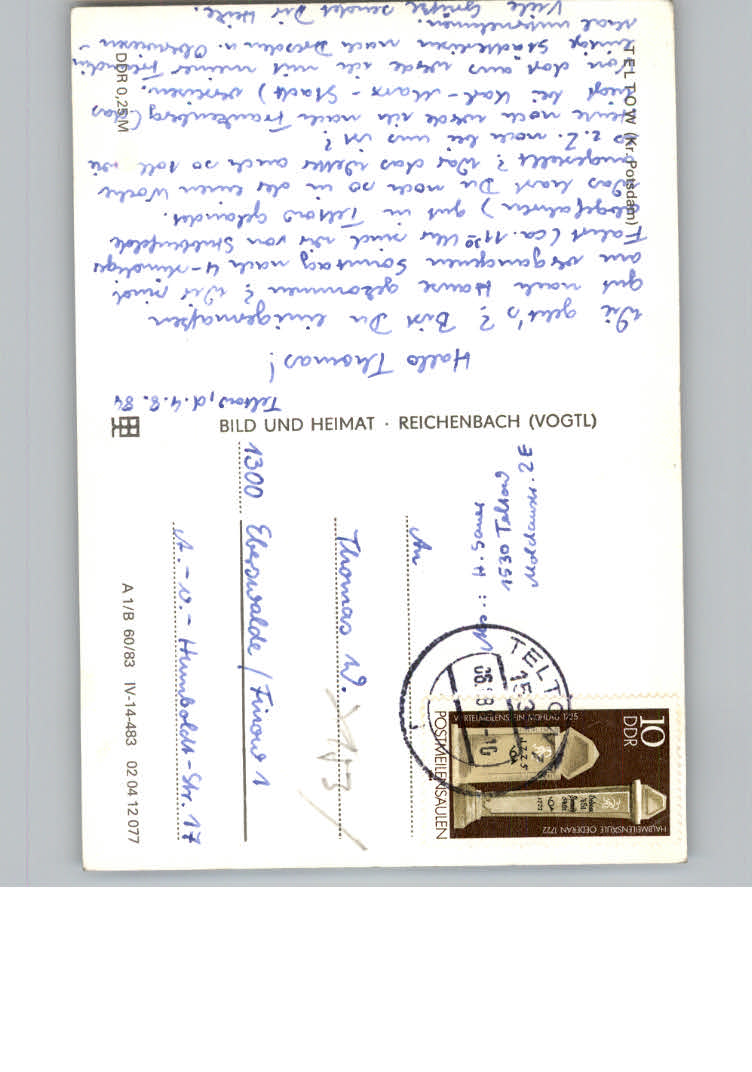 Teltow, d. 4.8.84
Hallo Thomas!
Wie geht's? Bist Du einigermaßen
gut nach Hause gekommen? Wir sind
am vergangenen Sonntag nach 4-stündiger
Fahrt (ca. 11³⁰ Uhr sind wir von Stubbenfelde
abgefahren) gut in Teltow gelandet.
Was hast Du noch so in der einen Woche
angestellt? War das Wetter auch so toll wie
es z. Z. noch bei uns ist?
Heute noch werde ich nach Frankenberg (das
liegt bei Karl-Marx-Stadt) verreisen.
Von dort aus werde ich mit meiner Freundin
einige Städtereisen nach Dresden u. Oberwiesen-
thal unternehmen.
Viele Grüße sendet Dir Heike.
TELTOW (Kr. Potsdam)
DDR 0,25 M
BILD UND HEIMAT · REICHENBACH (VOGTL)
Abs.: H. Sauer
1530 Teltow
2E
An
Thomas W.
1300 Eberswalde / Finow 1
A.-v.-Humboldt-Str. 17
A 1/B 60/83 IV-14-483 02 04 12 077
TELTO
153
10
DDR
HALBMEILENSÄULE OEDERAN 1722
VIERTELMEILENSTEIN MÜHLAU 1725
POSTMEILENSÄULEN